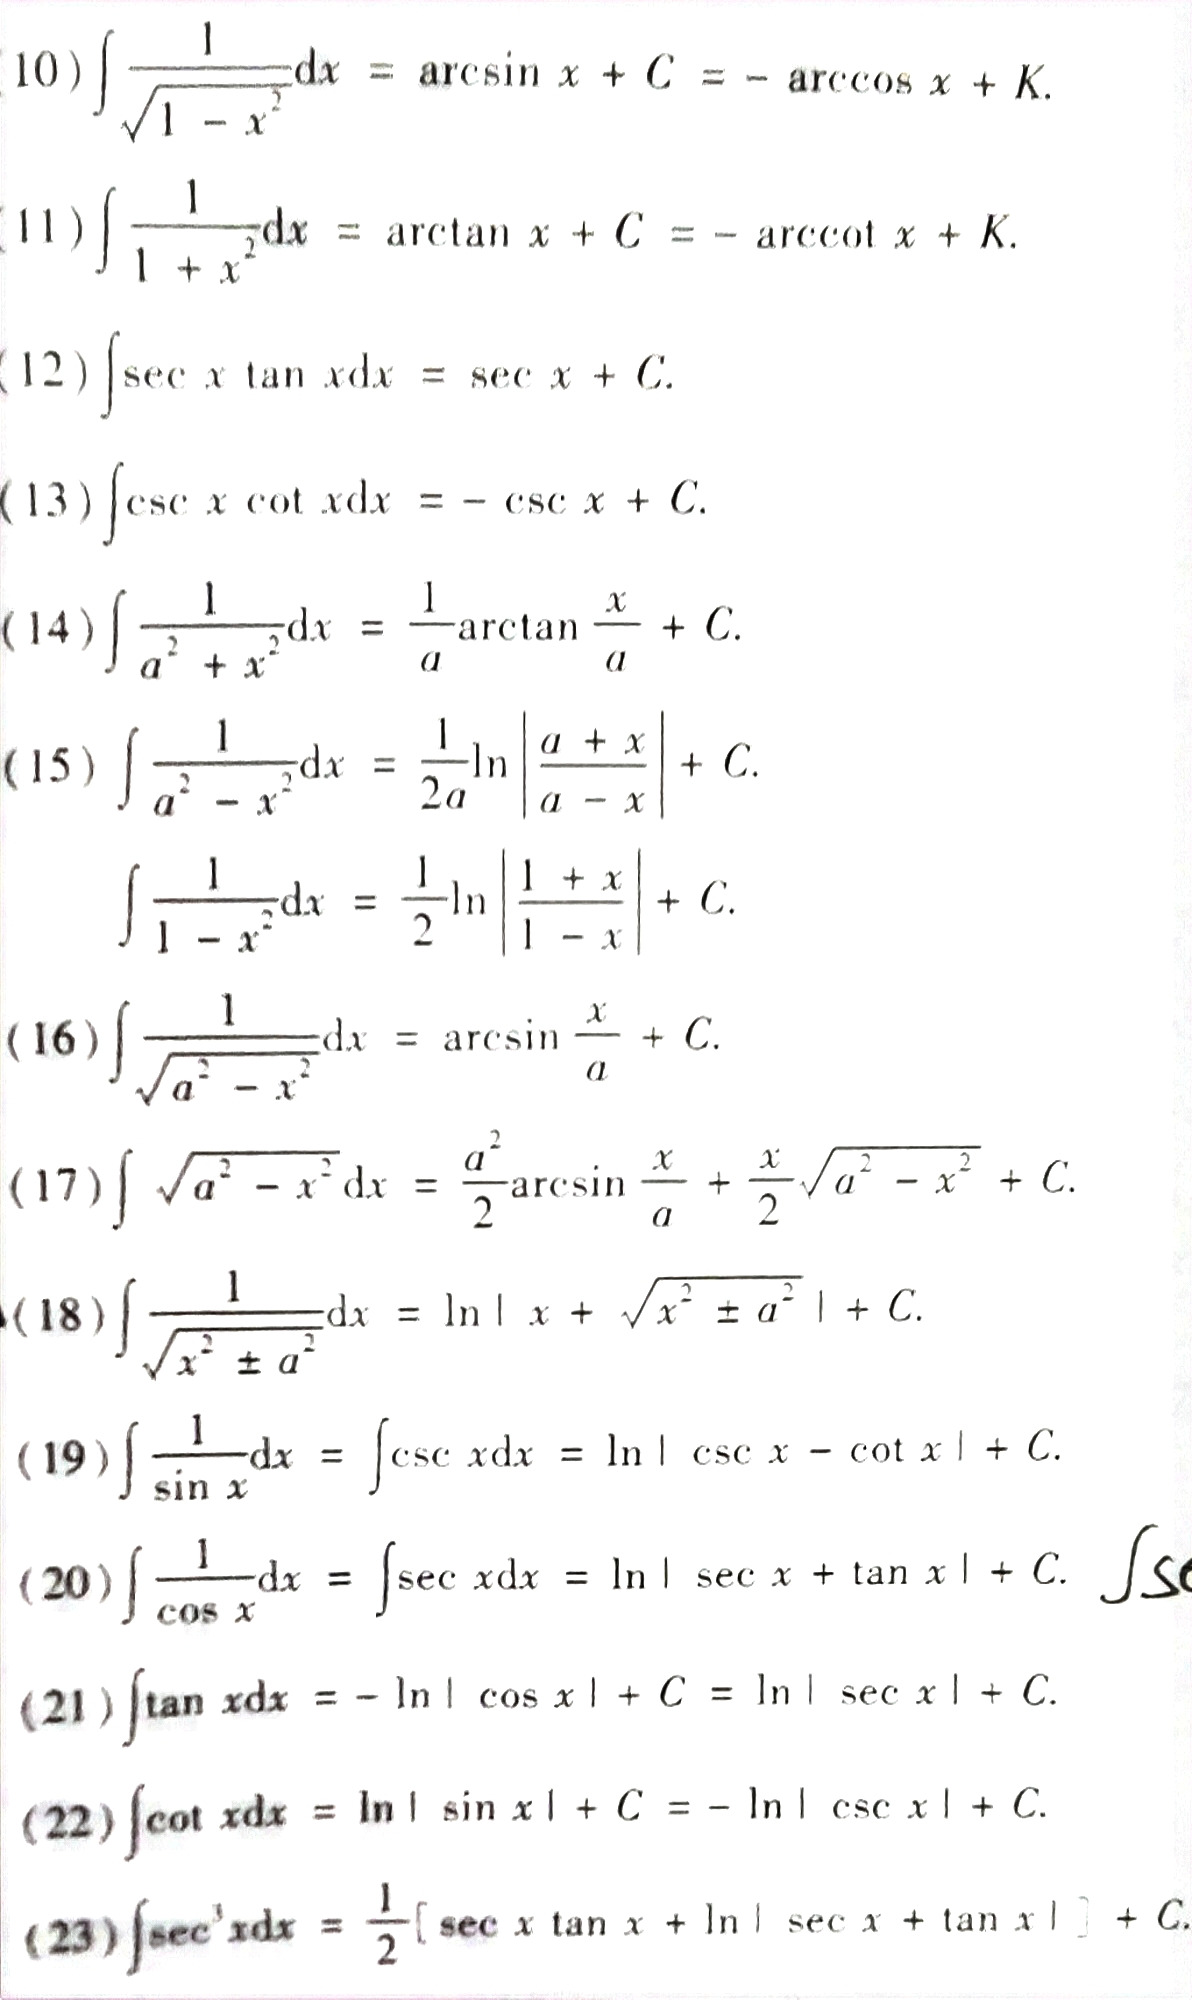 10) ∫ 1/√(1 − x²) dx = arcsin x + C = − arccos x + K.
11) ∫ 1/(1 + x²) dx = arctan x + C = − arccot x + K.
(12) ∫ sec x tan xdx = sec x + C.
(13) ∫ csc x cot xdx = − csc x + C.
(14) ∫ 1/(a² + x²) dx = 1/a arctan x/a + C.
(15) ∫ 1/(a² − x²) dx = 1/(2a) ln |(a + x)/(a − x)| + C.
∫ 1/(1 − x²) dx = 1/2 ln |(1 + x)/(1 − x)| + C.
(16) ∫ 1/√(a² − x²) dx = arcsin x/a + C.
(17) ∫ √(a² − x²) dx = a²/2 arcsin x/a + x/2 √(a² − x²) + C.
(18) ∫ 1/√(x² ± a²) dx = ln | x + √(x² ± a²) | + C.
(19) ∫ 1/sin x dx = ∫ csc xdx = ln | csc x − cot x | + C.
(20) ∫ 1/cos x dx = ∫ sec xdx = ln | sec x + tan x | + C. ∫
(21) ∫ tan xdx = − ln | cos x | + C = ln | sec x | + C.
(22) ∫ cot xdx = ln | sin x | + C = − ln | csc x | + C.
(23) ∫ sec³ xdx = 1/2 [ sec x tan x + ln | sec x + tan x | ] + C.